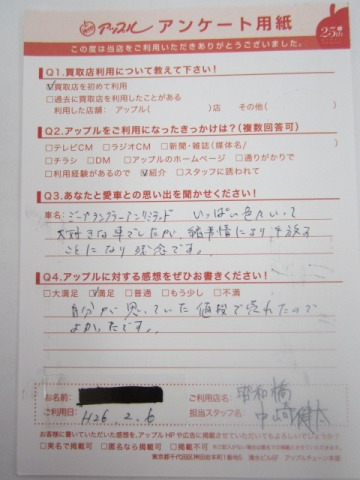 アップル アンケート用紙
25th
この度は当店をご利用いただきありがとうございました。
Q1.買取店利用について教えて下さい!
☑買取店を初めて利用
□過去に買取店を利用したことがある
利用した店舗: アップル( )店 その他( )
Q2.アップルをご利用になったきっかけは?(複数回答可)
□テレビCM □ラジオCM □新聞・雑誌(媒体名/ )
□チラシ □DM □アップルのホームページ □通りがかりで
□利用経験があるので ☑紹介 □スタッフに誘われて
Q3.あなたと愛車との思い出を聞かせください!
車名: ジープグランドチェロキーリミテッド いっぱい色々いて
大好きな車でしたが、諸事情により手放す
ことになり残念です。
Q4.アップルに対する感想をぜひお書きください!
□大満足 ☑満足 □普通 □もう少し □不満
自分が思っていた値段で売れたので
よかったです。
お名前:
ご利用日: H26.2.6
ご利用店名: 昭和橋
担当スタッフ名: 中嶋健太
お客様に書いていただいた感想を、アップルHPや広告に掲載させていただいてもよろしいでしょうか?
□実名で掲載可 □匿名なら掲載可 □掲載不可